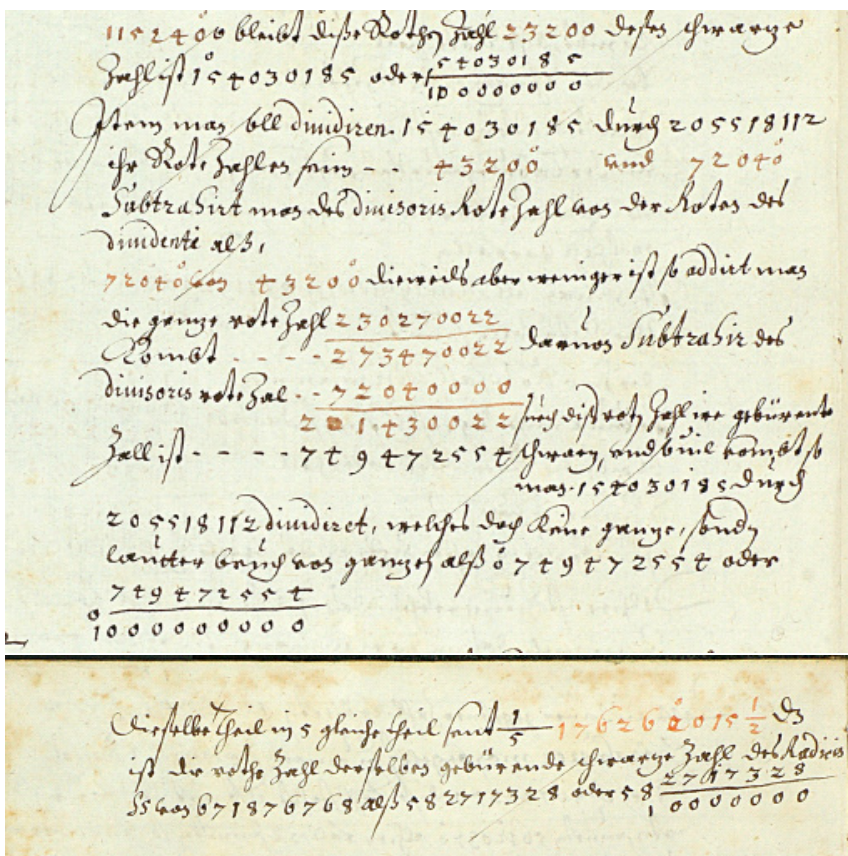 115240°0 bleibt diße Rothe Zahl 23200 deßen schwarze
Zahl ist 1°54030185 oder 1 54030185
100000000
Item man soll dividiren. 154030185 durch 205518112
ihr Rote Zahlen sein - - 43200° und 72040°
Subtrahirt man des divisoris Rote Zahl von der Roten des
dividenti alß,
72040° von 43200° dieweils aber weniger ist so addirt man
die ganze rote Zahl 230270022
Kombt - - - - 273470022 daruon Subtrahir des
divisoris rote Zal - - 72040000
201430022 such diß rote Zahl ire gebürente
Zall ist - - - - 749472554 schwarz, und souil kombt so
man. 154030185 durch
205518112 dividiret, welches doch keine ganze, sondern
lautter bruch von ganzen alß 0° 749472554 oder
749472554
1°000000000
Dieselbe theil in 5 gleiche theil seint 1/5 17626201°5 1/2 Dz
ist die rothe Zahl derselben gebürende schwarze Zahl des Radicis
von 671876768 alß 582717328 oder 58 2717328
1 0000000